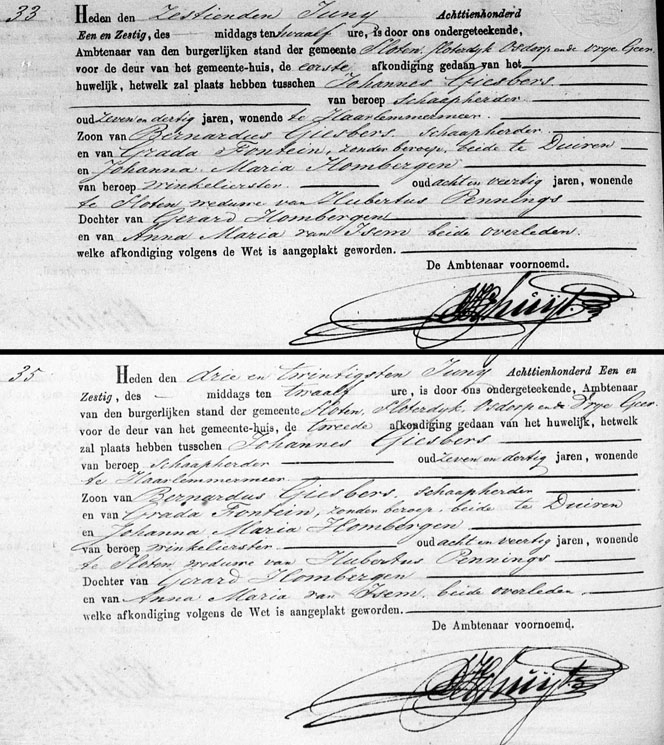 33 Heden den Zestienden Juny Achttienhonderd
Een en Zestig, des — middags ten twaalf ure, is door ons ondergeteekende,
Ambtenaar van den burgerlijken stand der gemeente Sloten, Sloterdyk, Osdorp en de Vrye Geer.
voor de deur van het gemeente-huis, de eerste afkondiging gedaan van het
huwelijk, hetwelk zal plaats hebben tusschen Johannes Giesbers
van beroep Schaapherder
oud zeven en dertig jaren, wonende te Haarlemmermeer.
Zoon van Bernardus Giesbers, Schaapherder.
en van Grada Fontein, zonder beroep, beide te Duiren
en Johanna Maria Hombergen
van beroep Winkelierster. oud acht en veertig jaren, wonende
te Sloten, weduwe van Hubertus Pennings
Dochter van Gerard Hombergen
en van Anna Maria van Isem beide overleden.
welke afkondiging volgens de Wet is aangeplakt geworden.
De Ambtenaar voornoemd.
35 Heden den drie en twintigsten Juny Achttienhonderd Een en
Zestig, des — middags ten twaalf ure, is door ons ondergeteekende, Ambtenaar
van den burgerlijken stand der gemeente Sloten, Sloterdyk, Osdorp en de Vrye Geer.
voor de deur van het gemeente-huis, de tweede afkondiging gedaan van het huwelijk, hetwelk
zal plaats hebben tusschen Johannes Giesbers
van beroep Schaapherder oud zeven en dertig jaren, wonende
te Haarlemmermeer.
Zoon van Bernardus Giesbers, Schaapherder
en van Grada Fontein, zonder beroep, beide te Duiren
en Johanna Maria Hombergen
van beroep Winkelierster. oud acht en veertig jaren, wonende
te Sloten, weduwe van Hubertus Pennings
Dochter van Gerard Hombergen
en van Anna Maria van Isem, beide overleden.
welke afkondiging volgens de Wet is aangeplakt geworden.
De Ambtenaar voornoemd.